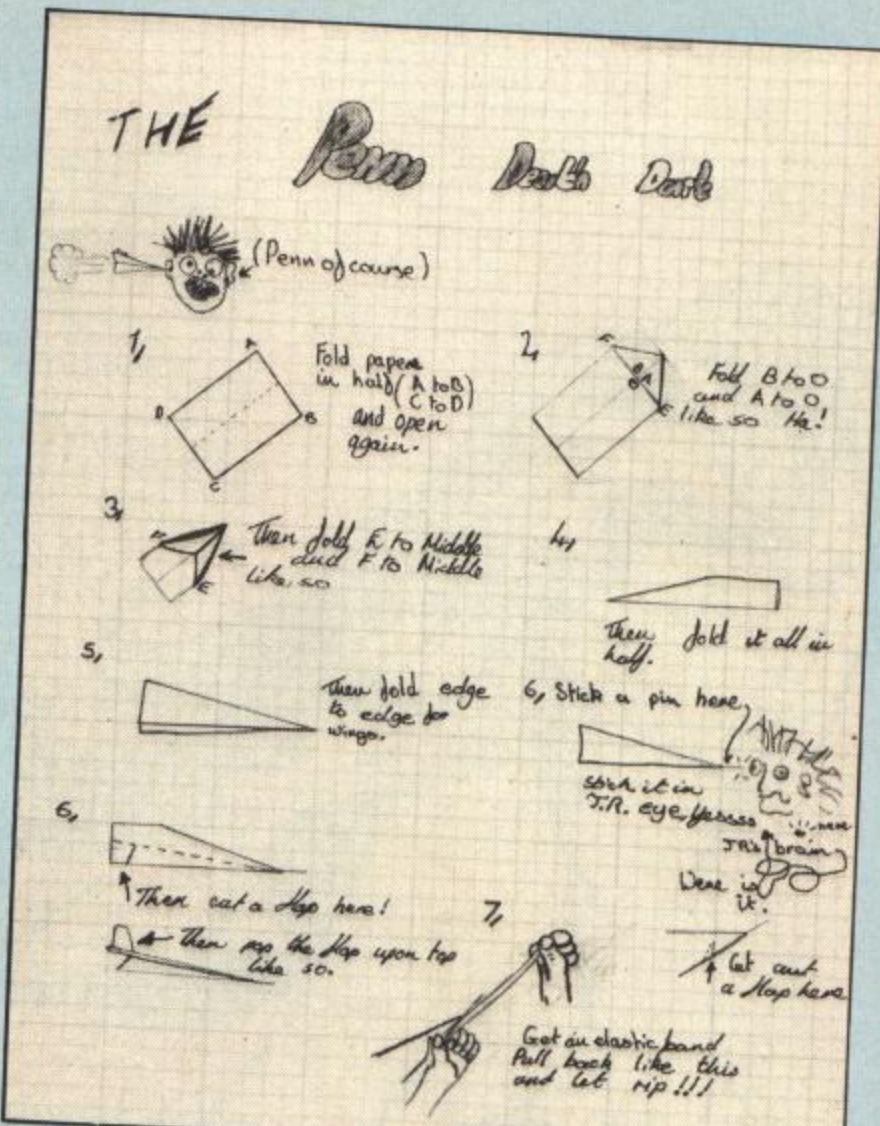 THE Penn Death Dart
(Penn of course)
1,
A
B
C
D
Fold papers
in half (A to B)
C to D)
and open
again.
2,
F
B A
O
E
Fold B to O
and A to O
like so Ha!
3,
F
E
Then fold E to Middle
and F to Middle
like so
4,
Then fold it all in
half.
5,
Then fold edge
to edge for
wings.
6, Stick a pin here
stick it in
J.R. eye, Yessss
here
JR's brain
Were is
it.
6,
Then cut a flap here!
Then pop the flap upon top
like so.
7,
Get an elastic band
Pull back like this
and let rip!!!
cut
a flap here